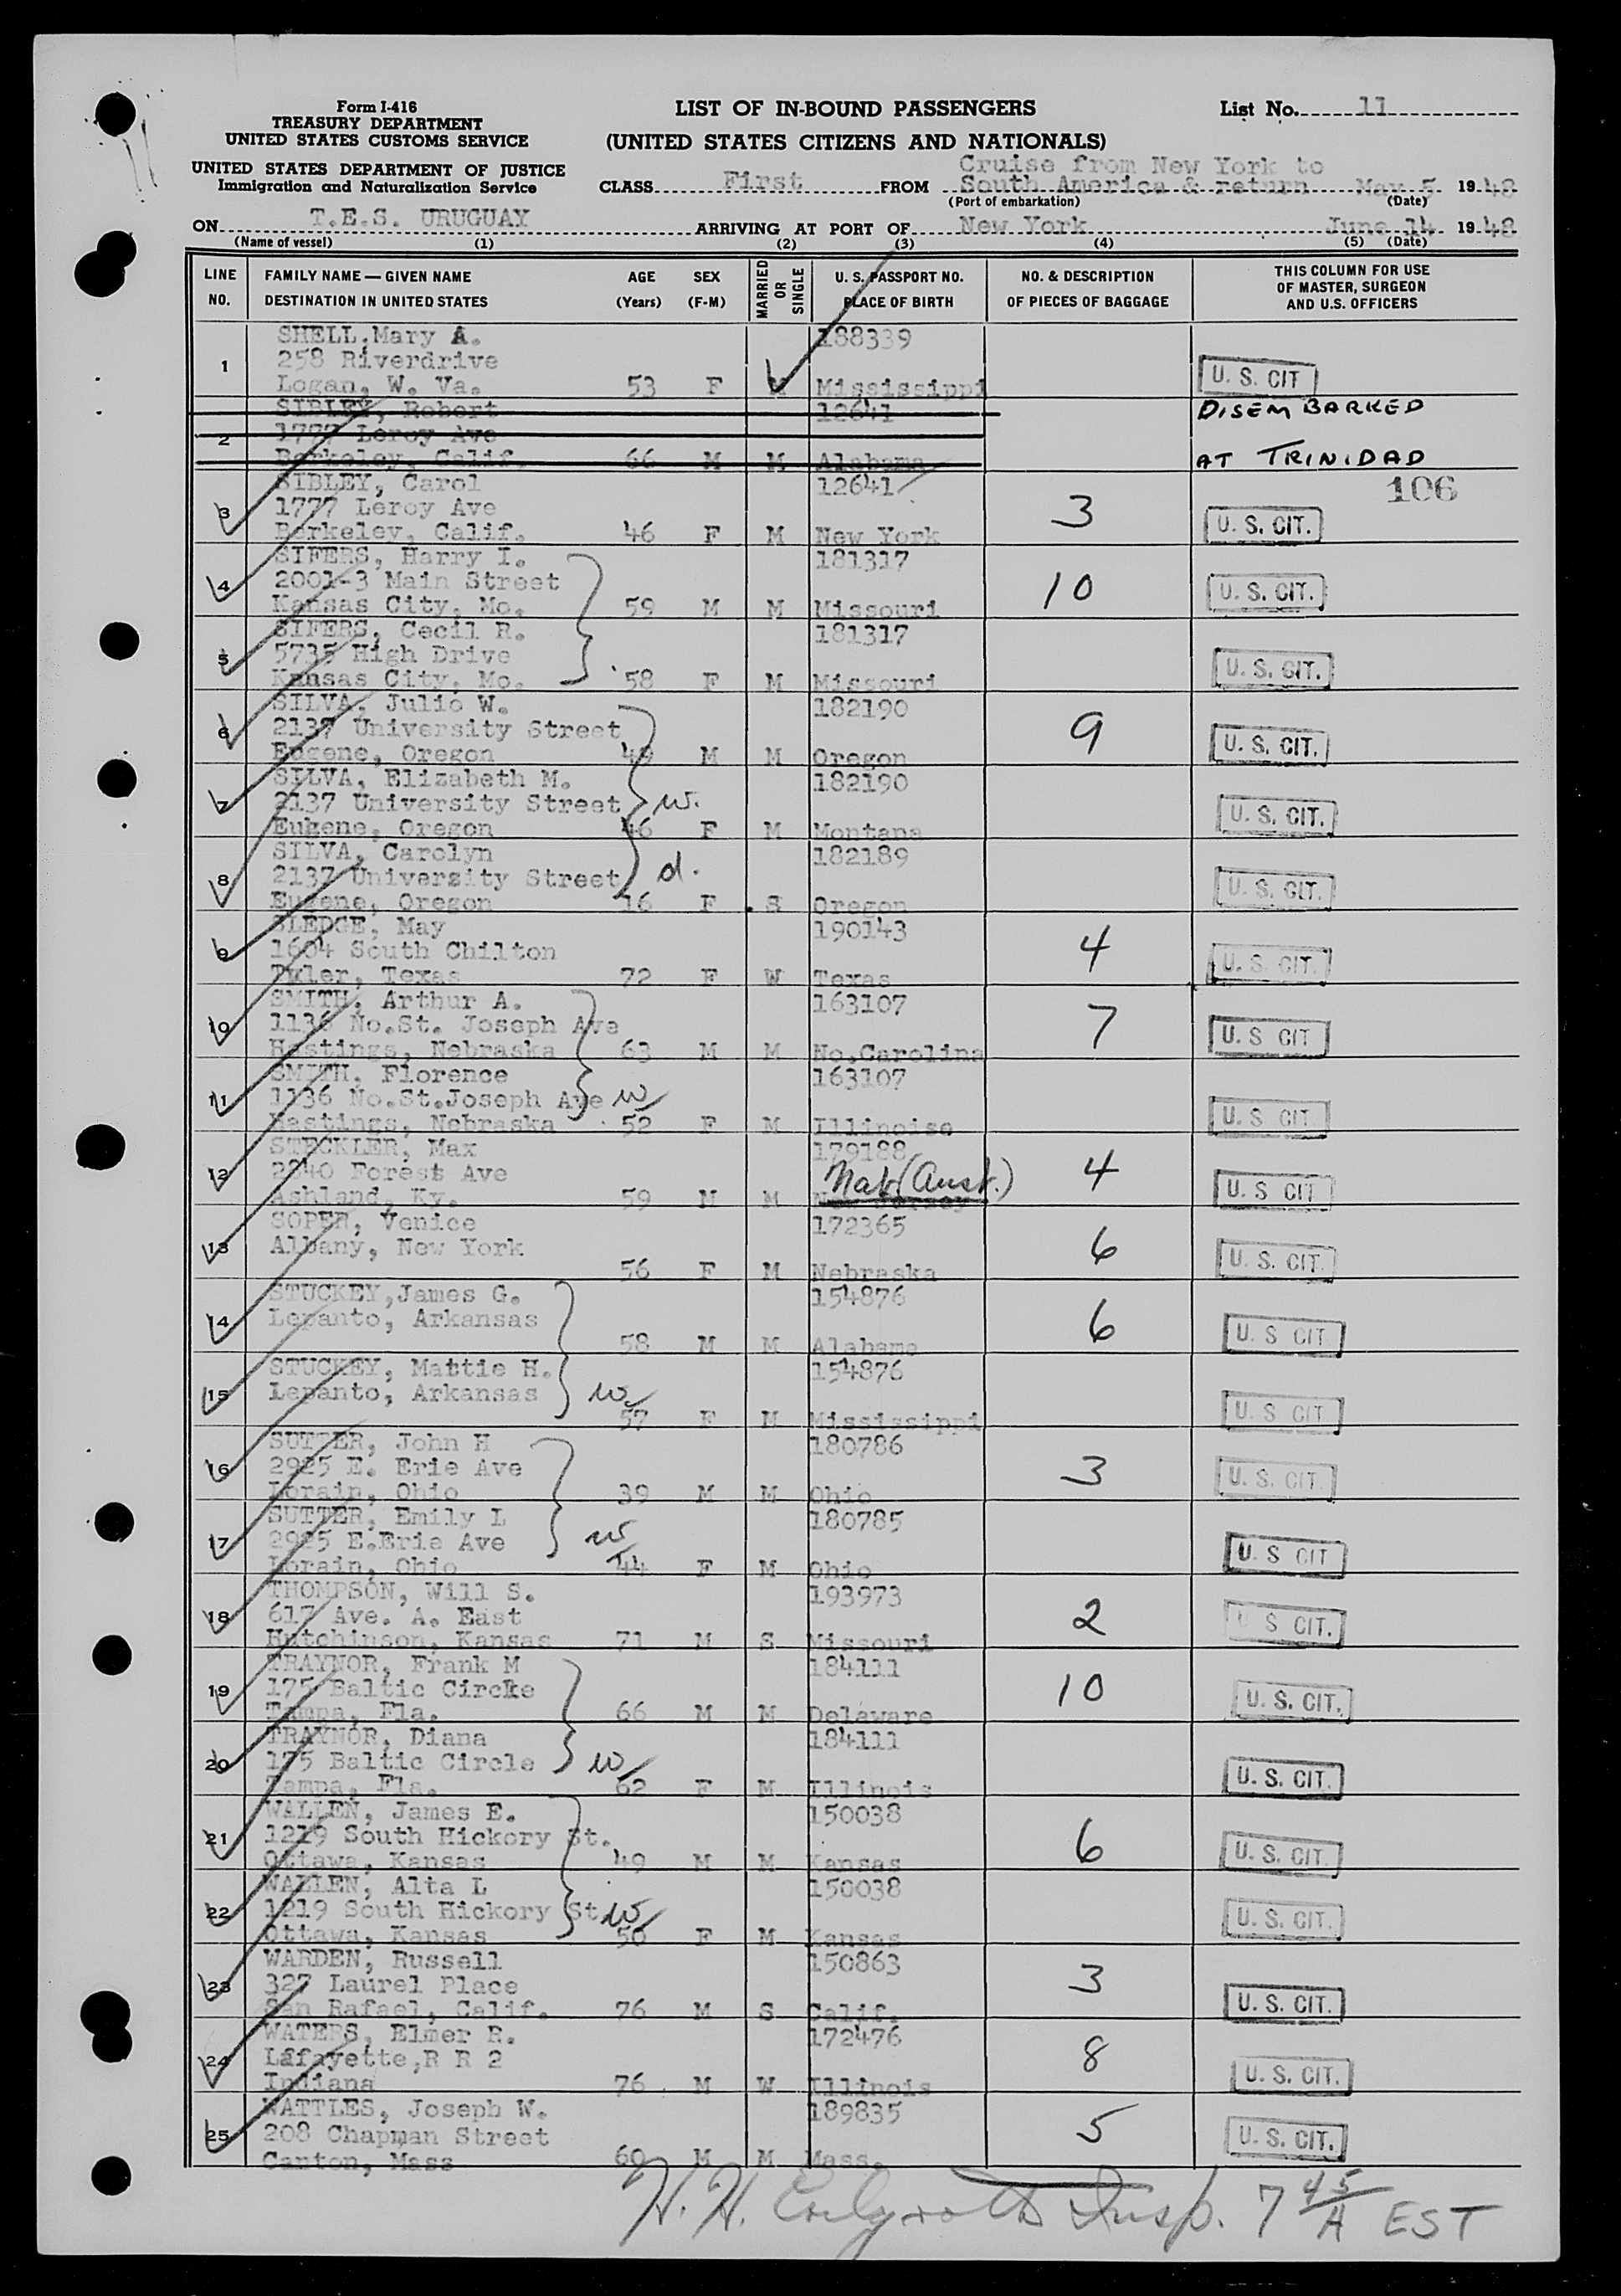 Form I-416
TREASURY DEPARTMENT
UNITED STATES CUSTOMS SERVICE
UNITED STATES DEPARTMENT OF JUSTICE
Immigration and Naturalization Service
LIST OF IN-BOUND PASSENGERS
(UNITED STATES CITIZENS AND NATIONALS)
List No. 11
Cruise from New York to
CLASS First FROM South America & return May 5 1948
(Port of embarkation) (Date)
ON T.E.S. URUGUAY ARRIVING AT PORT OF New York June 14 1948
(Name of vessel) (1) (2) (3) (4) (5) (Date)
LINE NO. FAMILY NAME — GIVEN NAME DESTINATION IN UNITED STATES AGE (Years) SEX (F-M) MARRIED OR SINGLE U. S. PASSPORT NO. PLACE OF BIRTH NO. & DESCRIPTION OF PIECES OF BAGGAGE THIS COLUMN FOR USE OF MASTER, SURGEON AND U.S. OFFICERS
SHELL, Mary A. 188339
1 258 Riverdrive
Logan, W. Va. 53 F Mississippi U. S. CIT
SIBLEY, Robert 12641 DISEMBARKED
2 1777 Leroy Ave
Berkeley, Calif. 66 M M Alabama AT TRINIDAD
SIBLEY, Carol 12641 106
3 1777 Leroy Ave 3
Berkeley, Calif. 46 F M New York U. S. CIT.
SIFERS, Harry I. 181317
4 2001-3 Main Street 10 U. S. CIT.
Kansas City, Mo. 59 M M Missouri
SIFERS, Cecil R. 181317
5 5735 High Drive
Kansas City, Mo. 58 F M Missouri U. S. CIT.
SILVA, Julio W. 182190
6 2137 University Street 9
Eugene, Oregon 49 M M Oregon U. S. CIT.
SILVA, Elizabeth M. 182190
7 2137 University Street w.
Eugene, Oregon 46 F M Montana U. S. CIT.
SILVA, Carolyn 182189
8 2137 University Street d.
Eugene, Oregon 16 F S Oregon U. S. CIT.
SLEDGE, May 190143
9 1604 South Chilton 4
Tyler, Texas 72 F W Texas U. S. CIT.
SMITH, Arthur A. 163107
10 1136 No.St. Joseph Ave 7
Hastings, Nebraska 63 M M No.Carolina U. S CIT
SMITH, Florence 163107
11 1136 No.St.Joseph Ave w
Hastings, Nebraska 52 F M Illinoise U. S CIT
STECKLER, Max 179188
12 2840 Forest Ave Nat (Aust.) 4
Ashland, Ky. 59 M M New Jersey U. S CIT
SOPER, Venice 172365
13 Albany, New York 6
56 F M Nebraska U. S. CIT.
STUCKEY,James G. 154876
14 Lepanto, Arkansas 6
58 M M Alabama U. S CIT
STUCKEY, Mattie H. 154876
15 Lepanto, Arkansas w
57 F M Mississippi U. S CIT
SUTTER, John H 180786
16 2925 E. Erie Ave 3
Lorain, Ohio 39 M M Ohio U. S. CIT
SUTTER, Emily L 180785
17 2925 E.Erie Ave w
Lorain, Ohio 44 F M Ohio U. S CIT
THOMPSON, Will S. 193973
18 617 Ave. A. East 2
Hutchinson, Kansas 71 M S Missouri U S CIT.
TRAYNOR, Frank M 184111
19 175 Baltic Circle 10
Tampa, Fla. 66 M M Delaware U. S. CIT.
TRAYNOR, Diana 184111
20 175 Baltic Circle w
Tampa, Fla. 62 F M Illinois U. S. CIT.
WALLEN, James E. 150038
21 1219 South Hickory St. 6
Ottawa, Kansas 49 M M Kansas U. S. CIT
WALLEN, Alta L 150038
22 1219 South Hickory St w
Ottawa, Kansas 50 F M Kansas U. S. CIT.
WARDEN, Russell 150863
23 327 Laurel Place 3
San Rafael, Calif. 76 M S Calif. U. S. CIT.
WATERS, Elmer R. 172476
24 Lafayette,R R 2 8
Indiana 76 M W Illinois U. S. CIT.
WATTLES, Joseph W. 189835
25 208 Chapman Street 5
Canton, Mass 60 M M Mass. U. S. CIT.
H. H. Insp. 7 45/A EST